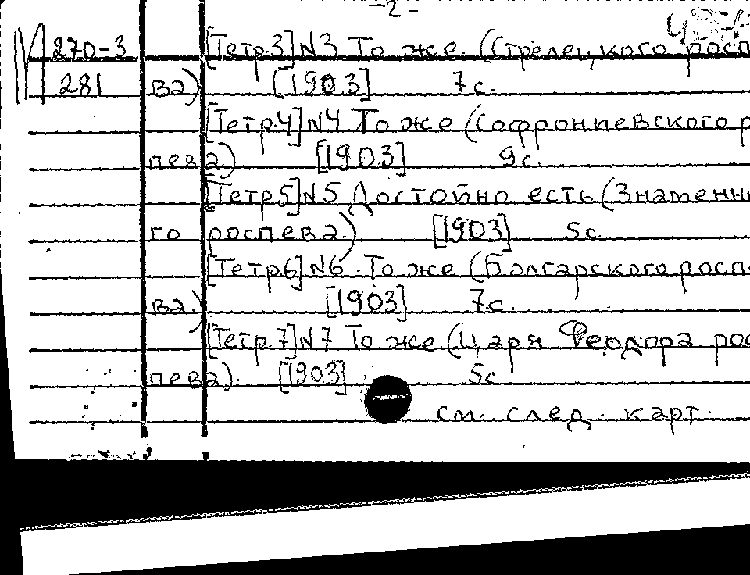 -2-
М 270-3 [Тетр.3] N3 То же. (Стрелецкого росп
281 ва) [1903] 7с.
[Тетр.4] N4 То же (Софрониевского р
пева) [1903] 9с.
[Тетр5] N5 Достойно есть (Знаменно
го роспева) [1903] 5с.
[Тетр6] N6. То же (Болгарского росп
ва.) [1903] 7с.
[Тетр.7] N7 То же (Царя Феодора рос
пева). [1903] 5с
см. след. карт.